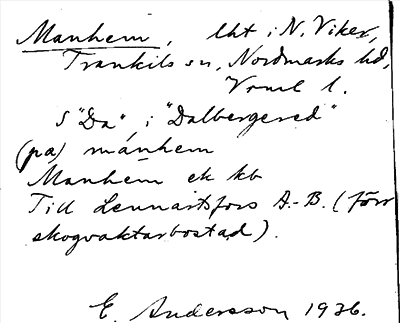 Manhem, lht i N. Viker,
Trankils sn, Nordmarks hd,
Vrml l.
S "Da" i "Dalbergsred"
(pa) mánhem
Manhem ek kb
Till Lennartsfors A.-B. (förr
skogvaktarbostad).
E. Andersson 1936.